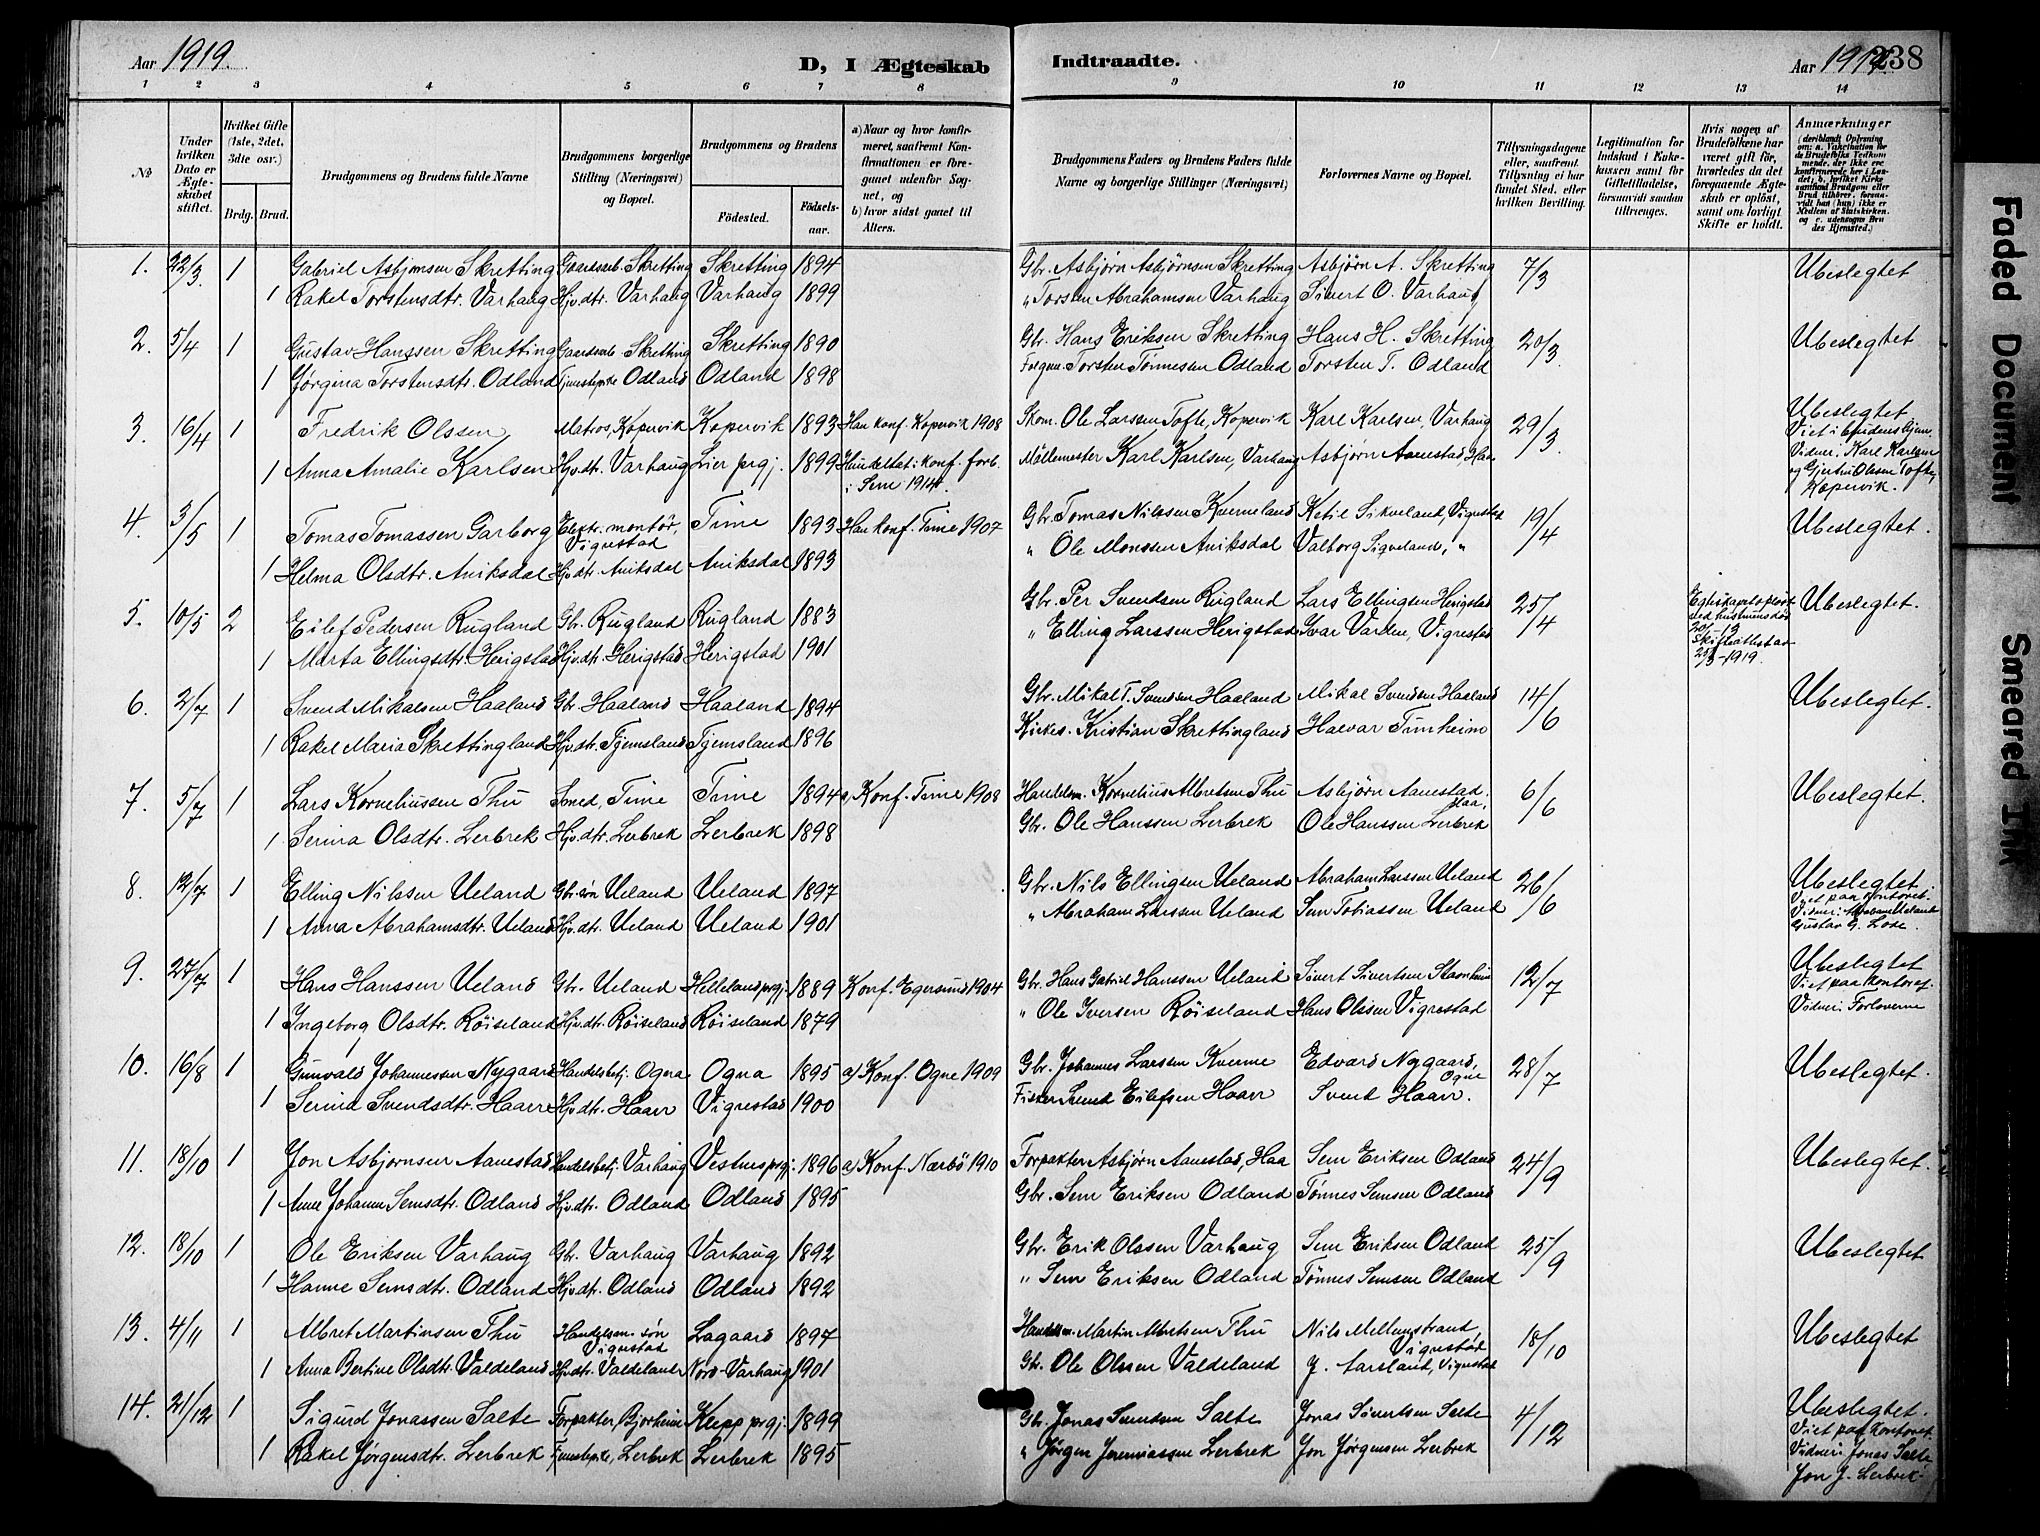 Aar 1919.
D, I Ægteskab Indtraadte.
Aar 1919. 238
1 2 3 4 5 6 7 8 9 10 11 12 13 14
No
Under hvilken Dato er Ægteskabet stiftet.
Hvilket Gifte (1ste, 2det, 3die osr.)
Brdg. Brud.
Brudgommens og Brudens fulde Navne
Brudgommens borgerlige Stilling (Næringsvei) og Bopæl.
Brudgommens og Brudens
Födested. Födsels-aar.
a) Naar og hvor konfirmeret, saafremt Konfirmationen er foregaaet udenfor Sognet, og
b) hvor sidst gaaet til Alters.
Brudgommens Faders og Brudens Faders fulde Navne og borgerlige Stillinger (Næringsvei)
Forlovernes Navne og Bopæl.
Tillysningsdagene eller, saafremt Tillysning ei har fundet Sted, efter hvilken Bevilling.
Legitimation for Indskud i Enkekassen samt for Giftetilladelse, forsaavidt saadan tiltrænges.
Hvis nogen af Brudefolkene har været gift før, hvorledes da det foregaaende Ægteskab er oplöst, samt om lovligt Skifte er holdt.
Anmærkninger
1. 22/3. 1 Gabriel Asbjørnsen Skretting Gaardsarb. Skretting Skretting 1894 Gbr. Asbjørn Asbjørnsen Skretting Asbjørn A. Skretting 7/3 Ubeslegtet
1 Rakel Torstensdtr. Varhaug Hjv.dtr. Varhaug Varhaug 1899 " Torsten Abrahamsen Varhaug Sivert O. Varhaug
2. 5/4 1 Gustav Hanssen Skretting Gaardsarb. Skretting Skretting 1890 Gbr. Hans Eriksen Skretting Hans H. Skretting 20/3. Ubeslegtet
1 Jørgina Torstensdtr. Odland Tjenestepike Odland Odland 1898 Torsten Tønnesen Odland Torsten T. Odland
3. 16/4 1 Fredrik Olssen Matros, Kopervik Kopervik 1893 Han konf. Kopervik 1908 Skom. Ole Larssen Tofte, Kopervik Karl Karlsen, Varhaug 29/3. Ubeslegtet.
Viet i brudens hjem.
Vidner: Karl Karlsen
og Gjertin Olssen Tofte,
Kopervik.
1 Anna Amalie Karlsen Hjv.dtr. Varhaug Lier prgj. 1899 Hun deltat i konf. forb. Möllemester Karl Karlsen, Varhaug Asbjørn Aanestad, Haa
i Sem 1914.
4. 3/5 1 Tomas Tomassen Garborg Elektr. montör, Vigrestad Time 1893 Han konf. Time 1907 Gbr. Tomas Nilssen Kverneland Ketil Sikveland, Vigrestad 19/4 Ubeslegtet.
1 Helma Olsdtr. Aniksdal Hjv.dtr. Aniksdal Aniksdal 1893 " Ole Monssen Aniksdal Valborg Sigveland, "
5. 10/5 2 Eilef Pedersen Rugland Gbr. Rugland Rugland 1883 Gbr. Per Svendsen Rugland Lars Ellingsen Herigstad 25/4 Ubeslegtet.
1 Marta Ellingsdtr. Herigstad Hjv.dtr. Herigstad Herigstad 1901 " Elling Larssen Herigstad Ivar Varden, Vigrestad
6. 2/7 1 Svend Mikalsen Haaland Gbr. Haaland Haaland 1894 Gbr. Mikal T. Svendsen Haaland Mikal Svendsen Haaland 14/6 Ubeslegtet.
1 Rakel Maria Skrettingland Hjv.dtr. Tjemsland Tjemsland 1896 Kirkes. Kristian Skrettingland Halvar Tunheim
7. 5/7 1 Lars Korneliussen Thu Smed, Time Time 1894 a) Konf. Time 1908 Handelsm. Kornelius Albretsen Thu Asbjørn Aanestad, Haa, 6/6 Ubeslegtet.
1 Serina Olsdtr. Lerbrek Hjv.dtr. Lerbrek Lerbrek 1898 Gbr. Ole Hanssen Lerbrek Ole Hanssen Lerbrek
8. 12/7 1 Elling Nilssen Ueland Gbr.sön Ueland Ueland 1897 Gbr. Nils Ellingsen Ueland Abraham Larssen Ueland 26/6 Ubeslegtet.
Viet paa kontoret.
Vidner: Abraham Ueland
Gustav G. Lode.
1 Anna Abrahamsdtr. Ueland Hjv.dtr. Ueland Ueland 1901 " Abraham Larssen Ueland Sem Tobiassen Ueland
9. 27/7 1 Hans Hanssen Ueland Gbr. Ueland Helleland prgj. 1889 Konf. Egersund 1904 Gbr. Hans Gabriel Hanssen Ueland Sivert Sivertsen Stavnheim 12/7 Ubeslegtet
Viet paa kontoret.
Vidner: Forloverne
1 Ingeborg Olsdtr. Röiseland Hjv.dtr. Röiseland Röiseland 1879 " Ole Iversen Röiseland Hans Olssen Vigrestad
10. 16/8 1 Gunvald Johannessen Nygaard Handelsbetj. Ogna Ogna 1895 a) Konf. Ogne 1909 Gbr. Johannes Larssen Kverme Edvard Nygaard, Ogne 28/7 Ubeslegtet.
1 Serina Svendsdtr. Haarr Hjv.dtr. Haarr Vigrestad 1900 Fisker Svend Eilefsen Haarr Svend Haarr.
11. 18/10 1 Jon Asbjørnsen Aanestad Handelsbetj. Varhaug Vestnes prgj. 1896 a) Konf. Nærbö 1910 Forpakter Asbjørn Aanestad, Haa Sem Eriksen Odland 24/9 Ubeslegtet.
1 Anne Johanne Semsdtr. Odland Hjv.dtr. Odland Odland 1895 Gbr. Sem Eriksen Odland Tönnes Semsen Odland
12. 18/10 1 Ole Eriksen Varhaug Gbr. Varhaug Varhaug 1892 Gbr. Erik Olssen Varhaug Sem Eriksen Odland 25/9 Ubeslegtet
1 Hanne Semsdtr. Odland Hjv.dtr. Odland Odland 1892 " Sem Eriksen Odland Tönnes Semsen Odland
13. 4/11 1 Albret Martinsen Thu Handelsm. sön Vigrestad Lagaard 1897 Handelsm. Martin Albretsen Thu Nils Mellemstrand, Vigrestad 18/10 Ubeslegtet
1 Anna Bertine Olsdtr. Valdeland Hjv.dtr. Valdeland Nord-Varhaug 1901 Gbr. Ole Olssen Valdeland J. Aarsland, Vigrestad
14. 21/12 1 Sigurd Jonassen Salte Forpakter, Bjorheim Klepp prgj. 1899 Gbr. Jonas Svendsen Salte Jonas Sivertsen Salte 4/12 Ubeslegtet.
Viet paa kontoret.
Vidner: Jonas Salte
Jon J. Lerbrek.
1 Rakel Jörgensdtr. Lerbrek Tjenestepike, Lerbrek Lerbrek 1895 " Jörgen Jeremiassen Lerbrek Jon Jörgensen Lerbrek
Faded Document
Smeared Ink